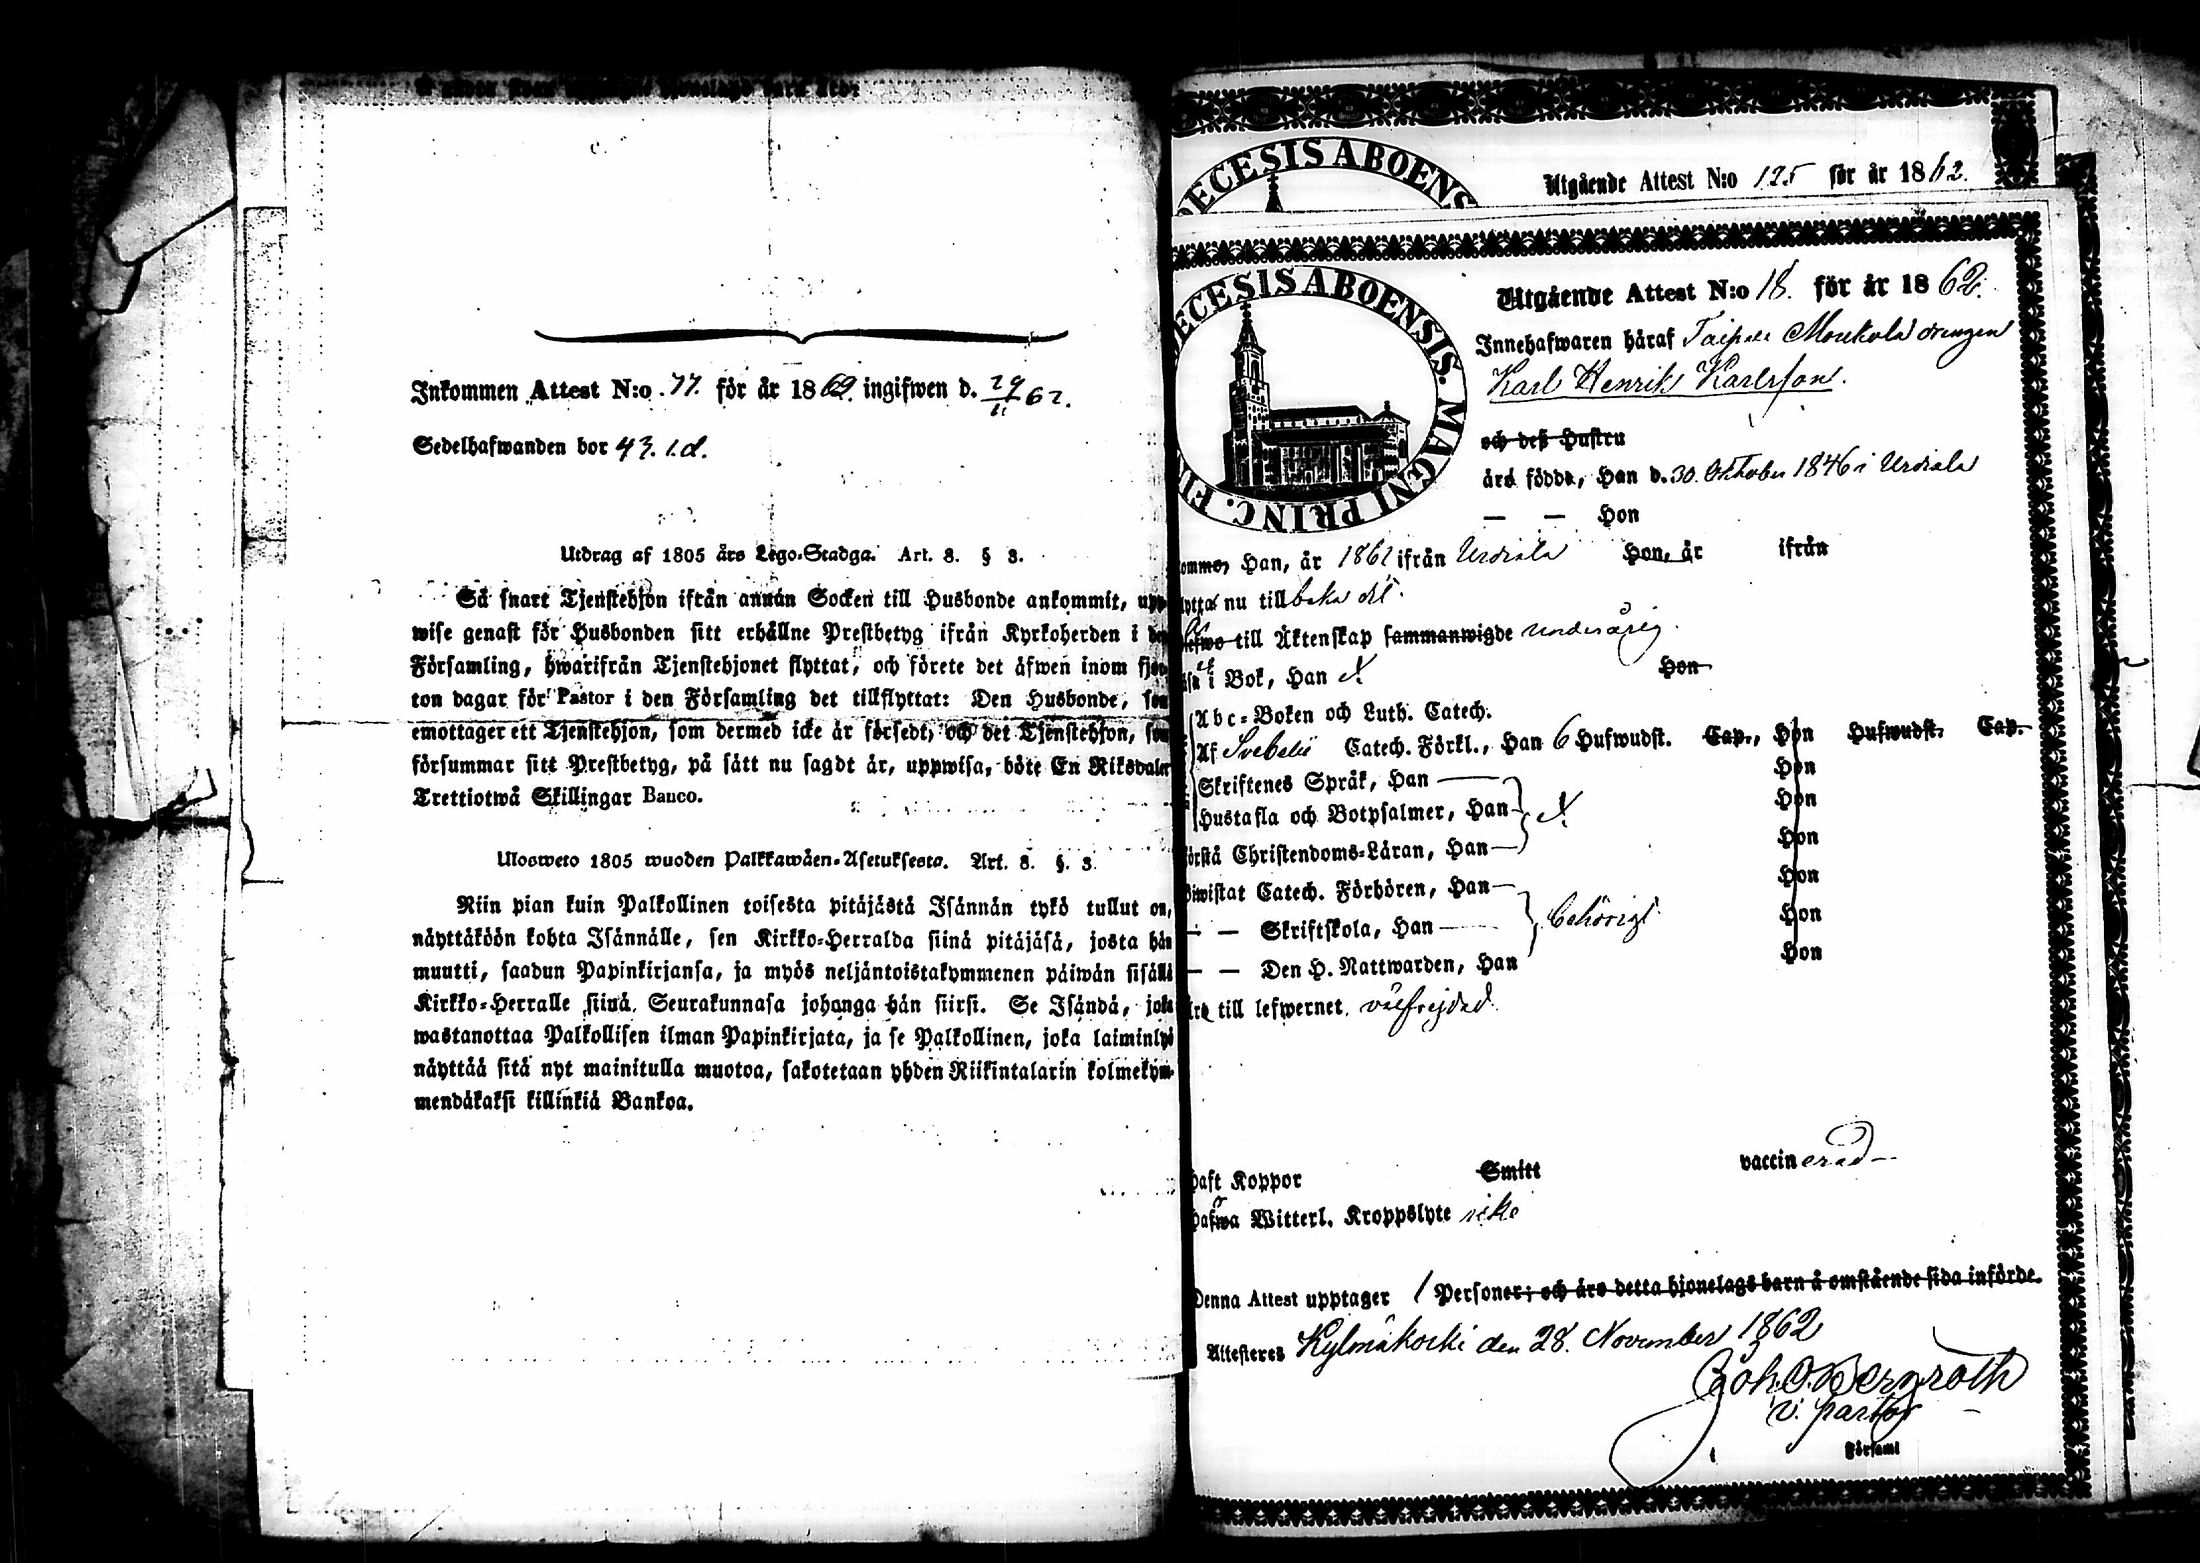 Inkommen Attest N:o 77. för år 1862. ingifwen d. 29/11 62.
Sedelhafwanden bor 43. i.d.
Utdrag af 1805 års Lego-Stadga. Art. 8. § 3.
Så snart Tjenstehjon ifrån annan Socken till Husbonde ankommit, upp-
wise genast för Husbonden sitt erhållne Prestbetyg ifrån Kyrkoherden i den
Församling, hwarifrån Tjenstehjonet flyttat, och förete det äfwen inom fjor-
ton dagar för Pastor i den Församling det tillflyttat: Den Husbonde, som
emottager ett Tjenstehjon, som dermed icke är försedt, och det Tjenstehjon, som
försummar sitt Prestbetyg, på sätt nu sagdt är, uppwisa, böte En Riksdaler
Trettiotwå Skillingar Banco.
Ulosweto 1805 wuoden Palkkawäen-Asetuksesta. Art. 8. §. 3.
Niin pian kuin Palkollinen toisesta pitäjästä Isännän tykö tullut on,
näyttäköön kohta Isännälle, sen Kirkko-Herralda siinä pitäjäsä, josta hän
muutti, saadun Papinkirjansa, ja myös neljäntoistakymmenen päiwän sisällä
Kirkko-Herralle siinä Seurakunnasa johonga hän siirsi. Se Isändä, joka
wastanottaa Palkollisen ilman Papinkirjata, ja se Palkollinen, joka laiminlyö
näyttää sitä nyt mainitulla muotoa, sakotetaan yhden Riikintalarin kolmekym-
mendäkaksi killinkiä Bankoa.
DECESIS ABOENS
Utgående Attest N:o 125 för år 1862.
ECESIS ABOENSIS. MAGNI PRINC. FIN
Utgående Attest N:o 18. för år 1862.
Innehafwaren häraf Taipale Moukola drengen
Karl Henrik Karlsson.
och deß Hustru
äro födde, Han d. 30. Oktober 1846 i Urdiala
— — Hon
omme, Han, år 1861 ifrån Urdiala Hon, år ifrån
lytta nu till baka dit.
lefwe till Äktenskap sammanwigde underårig.
i Bok, Han Hon
Abc-Boken och Luth. Catech.
Af Svebelii Catech. Förkl., Han 6 Hufwudst. Cap., Hon Hufwudst. Cap.
Skriftenes Språk, Han Hon
Hustafla och Botpsalmer, Han Hon
örstå Christendoms-Läran, Han Hon
iwistat Catech. Förhören, Han Hon
— — Skriftskola, Han behörigt. Hon
— — Den H. Nattwarden, Han Hon
Äro till lefwernet välfrejdad.
haft Koppor Smitt vaccinerad
hafwa Witterl. Kroppslyte icke
Denna Attest upptager 1 Personer; och äro detta hjonelags barn å omstående sida införde.
Attesteres Kylmäkoski den 28. November 1862
Joh. O. Bernroth
v. pastor
Församl